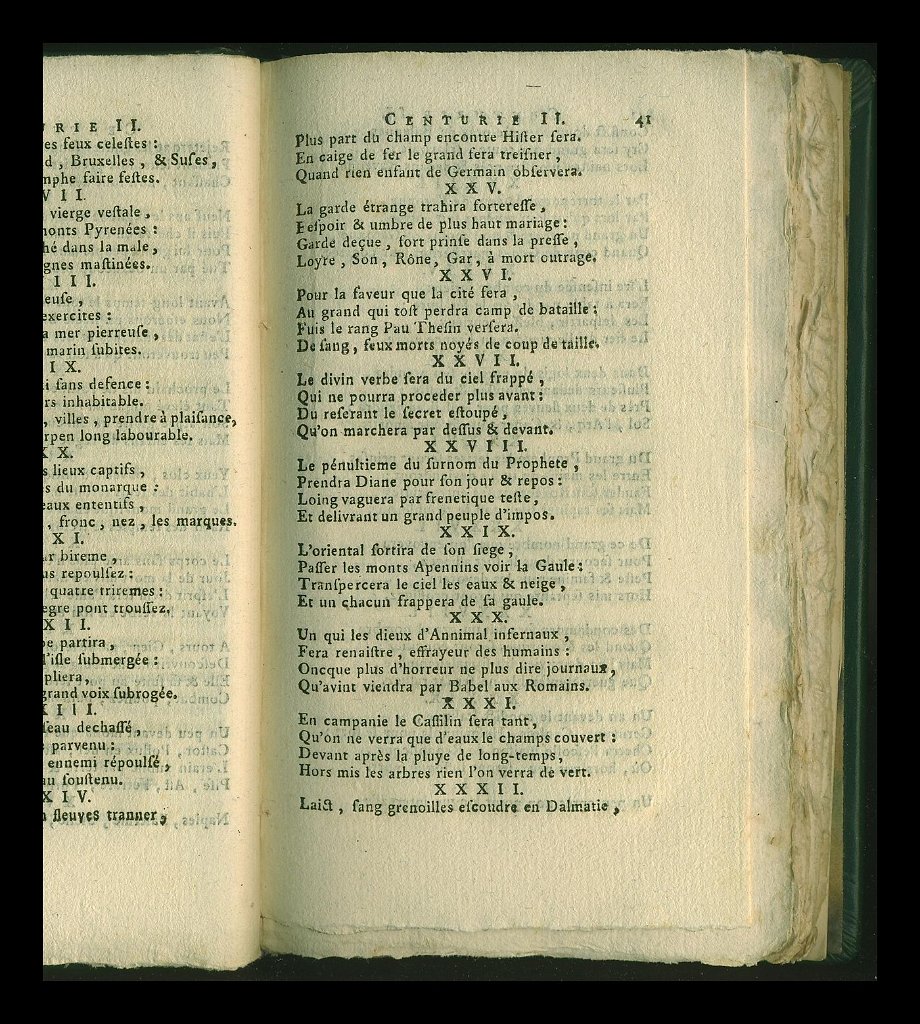 RIE II.
es feux celeſtes :
d , Bruxelles , & Suſes ,
mphe faire feſtes.
VII.
vierge veſtale ,
monts Pyrenées :
hé dans la male ,
gnes maſtinées.
III.
euſe ,
exercites :
a mer pierreuſe ,
marin ſubites.
IX.
i ſans defence :
rs inhabitable.
, villes , prendre à plaiſance,
rpen long labourable.
X.
s lieux captifs ,
s du monarque :
eaux ententifs ,
, fronc , nez , les marques.
XI.
ar bireme ,
us repoulſez :
quatre triremes :
egre pont trouſſez.
XII.
pe partira ,
l'iſle ſubmergée :
pliera ,
grand voix ſubrogée.
XIII.
ſeau dechaſſé ,
parvenu :
ennemi répoulſé ,
au ſouſtenu.
XIV.
fleuves tranner ,
CENTURIE II. 41
Plus part du champ encontre Hiſter ſera.
En caige de fer le grand ſera treiſner ,
Quand rien enfant de Germain obſervera.
XXV.
La garde étrange trahira fortereſſe ,
Eſpoir & umbre de plus haut mariage :
Garde deçue , fort prinſe dans la preſſe ,
Loyre , Son , Rône, Gar, à mort outrage.
XXVI.
Pour la faveur que la cité ſera ,
Au grand qui toſt perdra camp de bataille :
Fuis le rang Pau Theſin verſera.
De ſang, feux morts noyés de coup de taille.
XXVII.
Le divin verbe ſera du ciel frappé ,
Qui ne pourra proceder plus avant :
Du reſerant le ſecret eſtoupé ,
Qu'on marchera par deſſus & devant.
XXVIII.
Le pénultieme du ſurnom du Prophete ,
Prendra Diane pour ſon jour & repos :
Loing vaguera par frenetique teſte ,
Et delivrant un grand peuple d'impos.
XXIX.
L'oriental ſortira de ſon ſiege ,
Paſſer les monts Apennins voir la Gaule :
Tranſpercera le ciel les eaux & neige ,
Et un chacun frappera de ſa gaule.
XXX.
Un qui les dieux d'Annimal infernaux ,
Fera renaiſtre , effrayeur des humains :
Oncque plus d'horreur ne plus dire journaux ,
Qu'avint viendra par Babel aux Romains.
XXXI.
En campanie le Caſſilin ſera tant ,
Qu'on ne verra que d'eaux le champs couvert :
Devant après la pluye de long-temps ,
Hors mis les arbres rien l'on verra de vert.
XXXII.
Laict , ſang grenoilles eſcoudre en Dalmatie ,